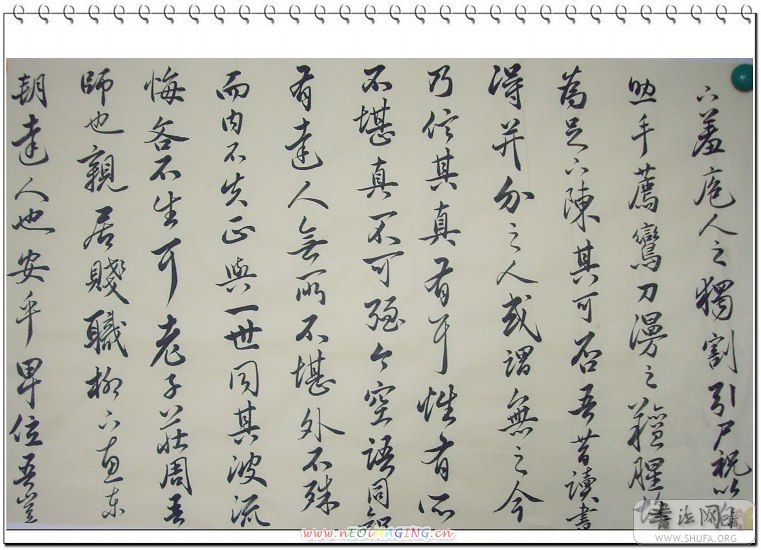 下羞庖人之獨割引尸祝以
助手薦鸞刀漫之羶腥
為足下陳其可否吾昔讀書
得并介之人或謂無之今
乃信其真有耳性有所
不堪真不可強今空語同知
有達人無所不堪外不殊
而內不失正與一世同其波流
悔吝不生耳老子莊周吾
師也親居賤職柳下惠東
朔達人也安乎卑位吾豈
书法网
WWW.SHUFA.ORG
www.nEOiMAGING.cn